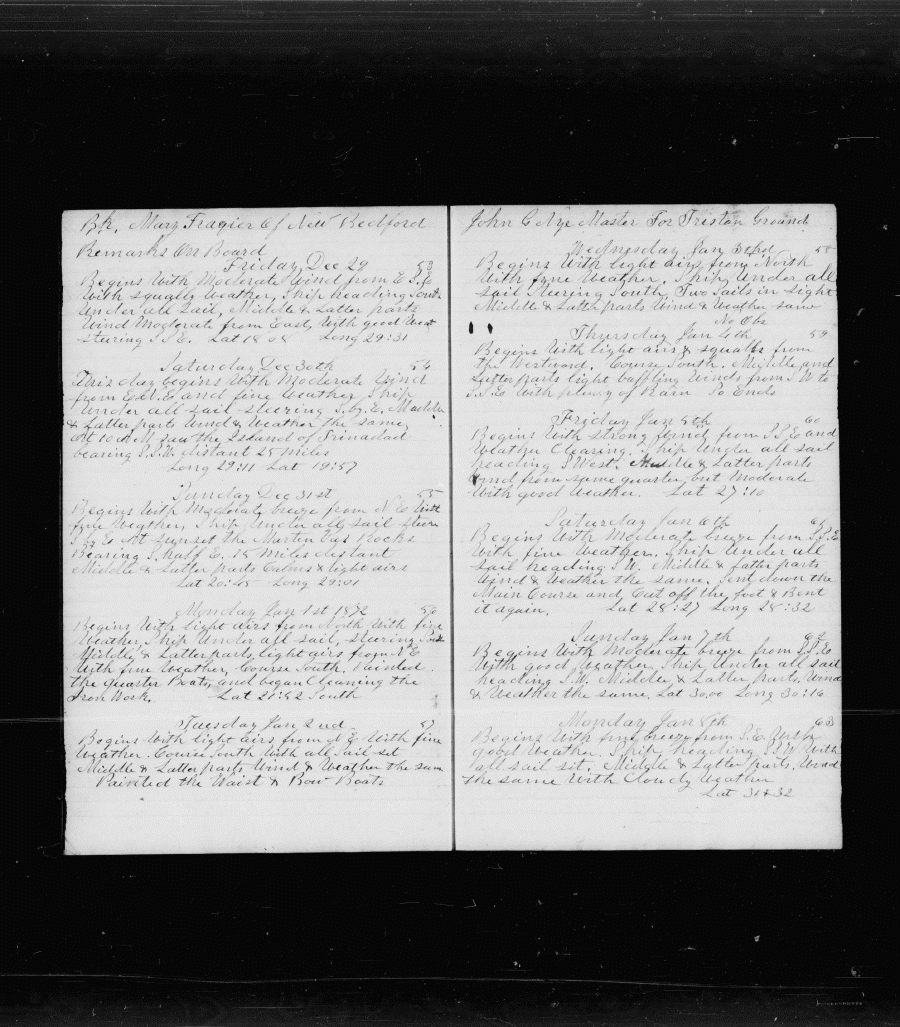 Bk. Mary Frazier Of New Bedford
Remarks On Board
Friday Dec 29 53
Begins With Moderate Wind from E.S.E
With squally Weather, Ship heading South
Under all Sail, Middle & Latter parts
Wind Moderate from East, With good Weat
stearing S.S.E. Lat 18 08 Long 29:31
Saturday Dec 30th 54
This day begins With Moderate Wind
from E and fine Weather Ship
Under all sail steering S.by.E. Middle
& Latter parts Wind & Weather the same
At 10 A M saw the Island of Trinadad
bearing S.S.W. distant 25 Miles
Long 29:11 Lat 19:57
Sunday Dec 31st 55
Begins With Moderate breeze from N.E With
fine Weather, Ship Under all sail steern
S by E At Sunset the Martin Vas Rocks
Bearing S. half E. 15 Miles distant
Middle & Latter parts Calms & light airs
Lat 20:45 Long 29:01
Monday Jan 1st 1872 56
Begins With light airs from North With fine
Weather, Ship Under all sail, stearing South
Middle & Latter parts, light airs from N E
With fine Weather, Course South. Painted
the Quarter Boats, and began Cleaning the
Iron Work. Lat 21:42 South
Tuesday Jan 2nd 57
Begins With light airs from N E With fine
Weather. Course South With all Sail set
Middle & Latter parts Wind & Weather the same
Painted the Waist & Bow Boats
John C Nye Master For Tristan Ground
Wednesday Jan 3rd 58
Begins With light airs from North
With fyne Weather. Ship Under all
sail Steering South Two Sails in Sight
Middle & Latter parts Wind & Weather same
No Obs
Thursday Jan 4th 59
Begins With light airs & squalls from
the Westward. Course South. Middle and
Latter parts light baffling Winds from S W to
S.S.E With plenty of Rain So Ends
Friday Jan 5th 60
Begins With strong from S.S.E and
Weather Clearing. Ship Under all sail
heading S West. Middle & Latter parts
Wind from same quarter, but Moderate
With good Weather. Lat 27:10
Saturday Jan 6th 61
Begins With Moderate breeze from S.S.E
With fine Weather. Ship Under all
sail heading S.W. Middle & latter parts
Wind & Weather the same. Sent down the
Main Course and Cut off the foot & Bent
it again. Lat 28:27 Long 28:32
Sunday Jan 7th 62
Begins With Moderate breeze from S.S.E
With good Weather Ship Under all sail
heading S.W. Middle & Latter parts, Wind
& Weather the same. Lat 30,00 Long 30:16
Monday Jan 8th 63
Begins With fine breeze from S.E With
good Weather. Ship heading S.S.W With
all sail set. Middle & Latter parts, Wind
the same With Cloudy Weather
Lat 31 32